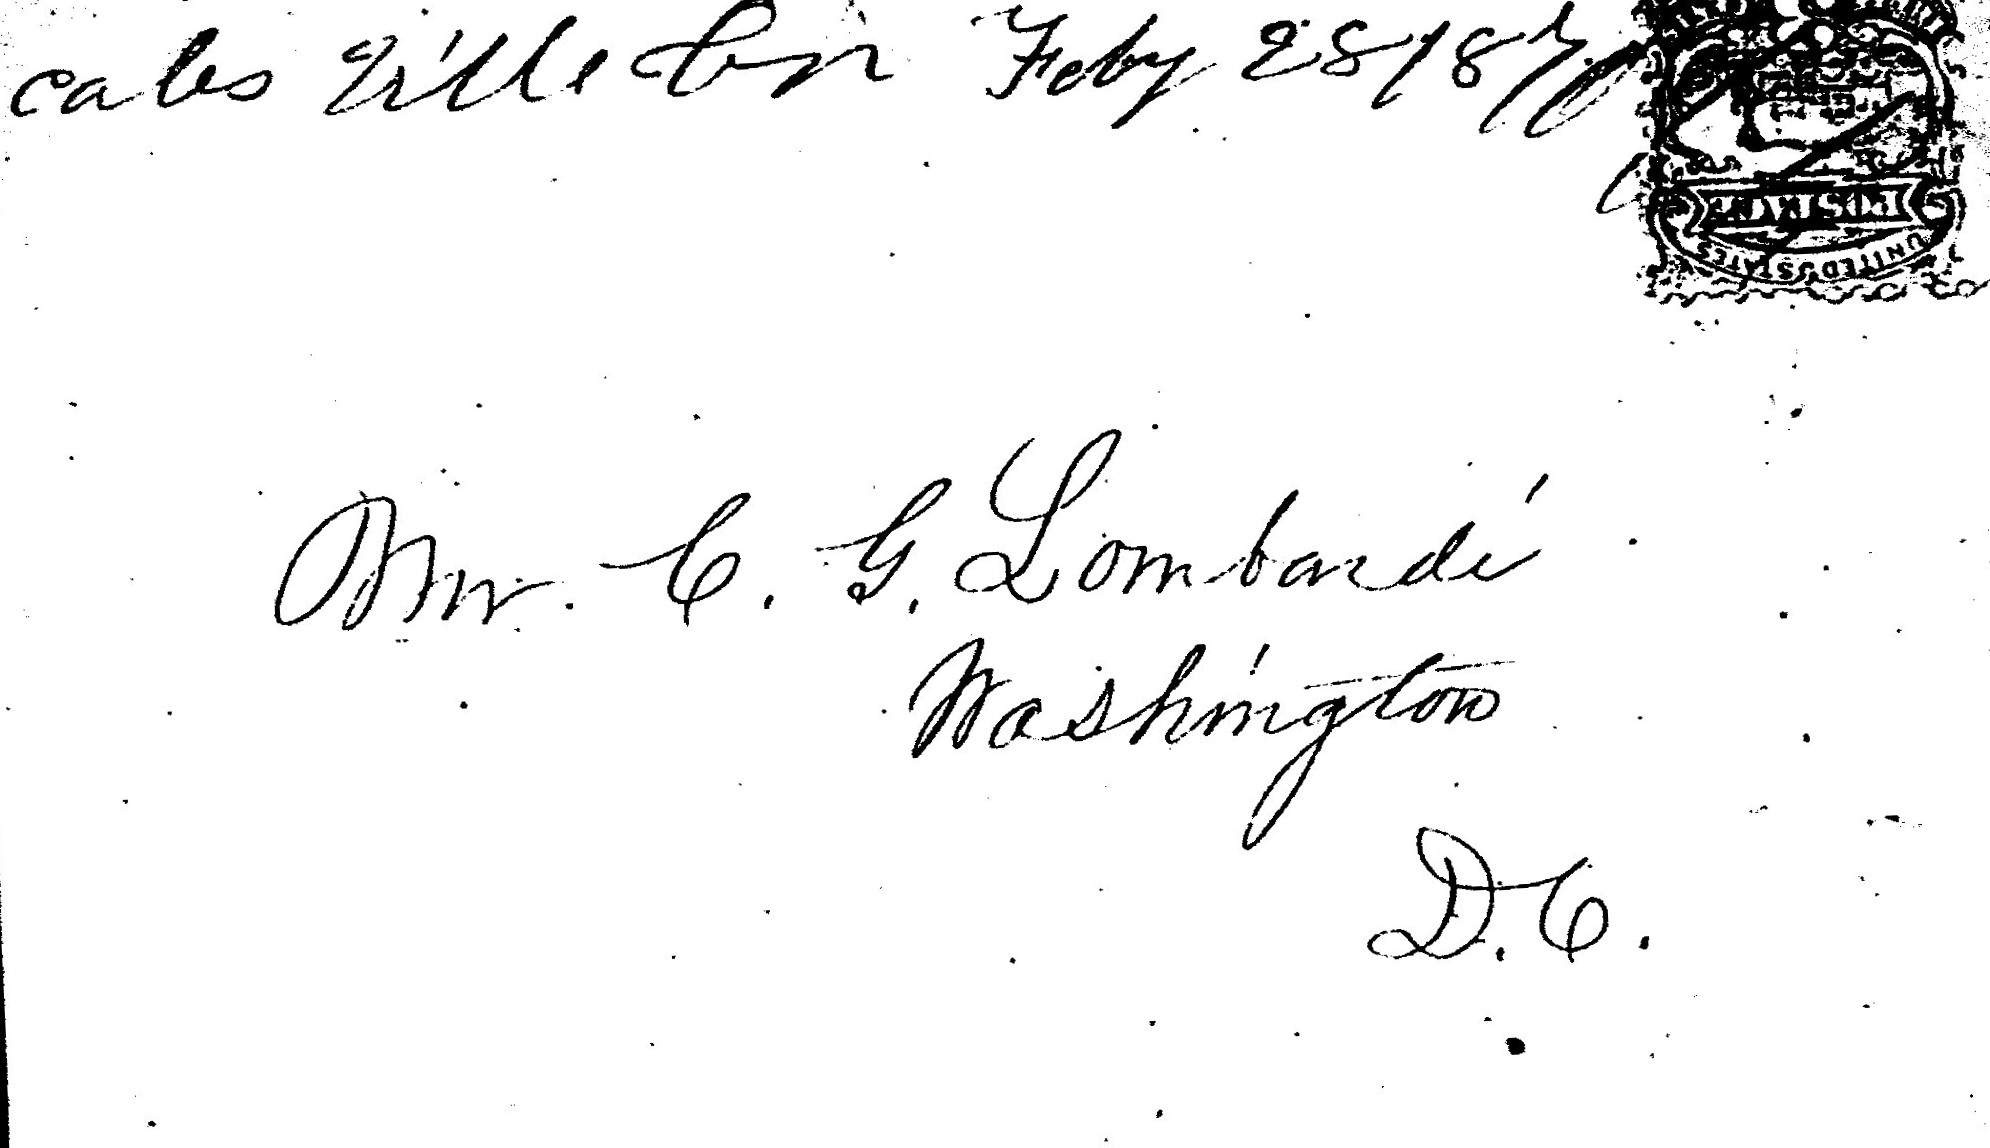 cales Ville Feby 28 187
Mr. C. G. Lombardi
Washington
D.C.
POSTAGE
UNITED STATES